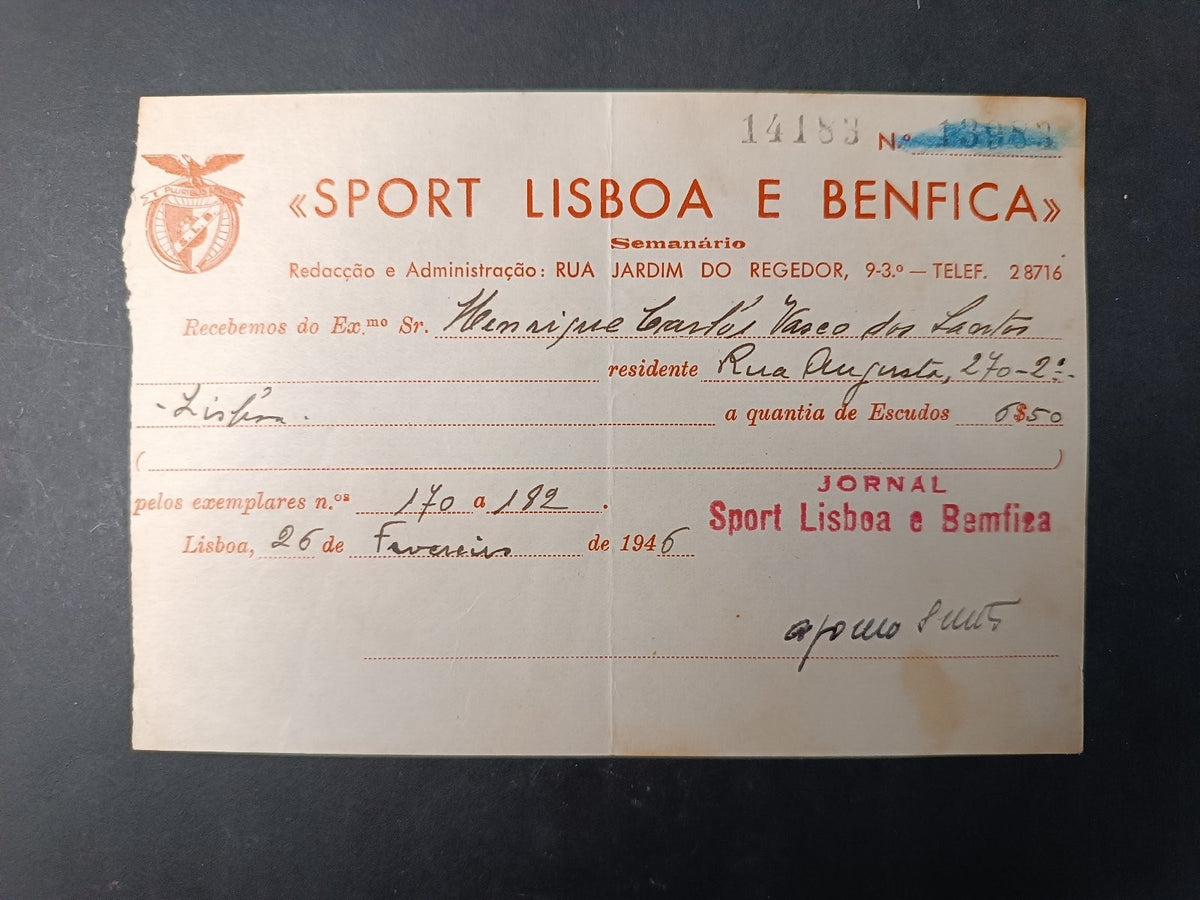 14183 N.º 13983
E PLURIBUS
S.L.B.
«SPORT LISBOA E BENFICA»
Semanário
Redacção e Administração: RUA JARDIM DO REGEDOR, 9-3.º — TELEF. 28716
Recebemos do Ex.mo Sr. Henrique Carlos Vasco dos Santos
residente Rua Augusta, 270-2º-
- Lisboa. a quantia de Escudos 6$50
( )
pelos exemplares n.os 170 a 182.
JORNAL
Sport Lisboa e Bemfica
Lisboa, 26 de Fevereiro de 1946